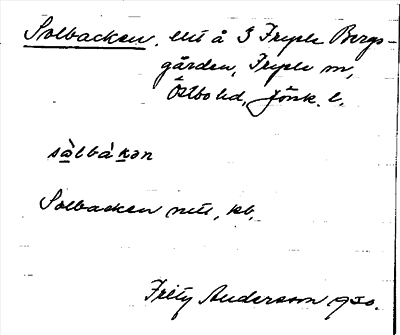 Solbacken, ett å 3 Fryele Bergs-
gården, Fryele sn,
Östbo hd, Jönk. l.
sòlbàkən
Solbacken nutt, kb,
Fritz Andersson 1950.